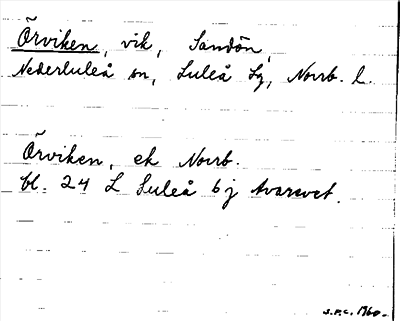 Örviken, vik, Sandön,
Nederluleå sn, Luleå lg, Norrb. l.
Örviken, ek Norrb.
bl. 24 L Luleå 6 j Avarevet.
S.P.C. 1960.